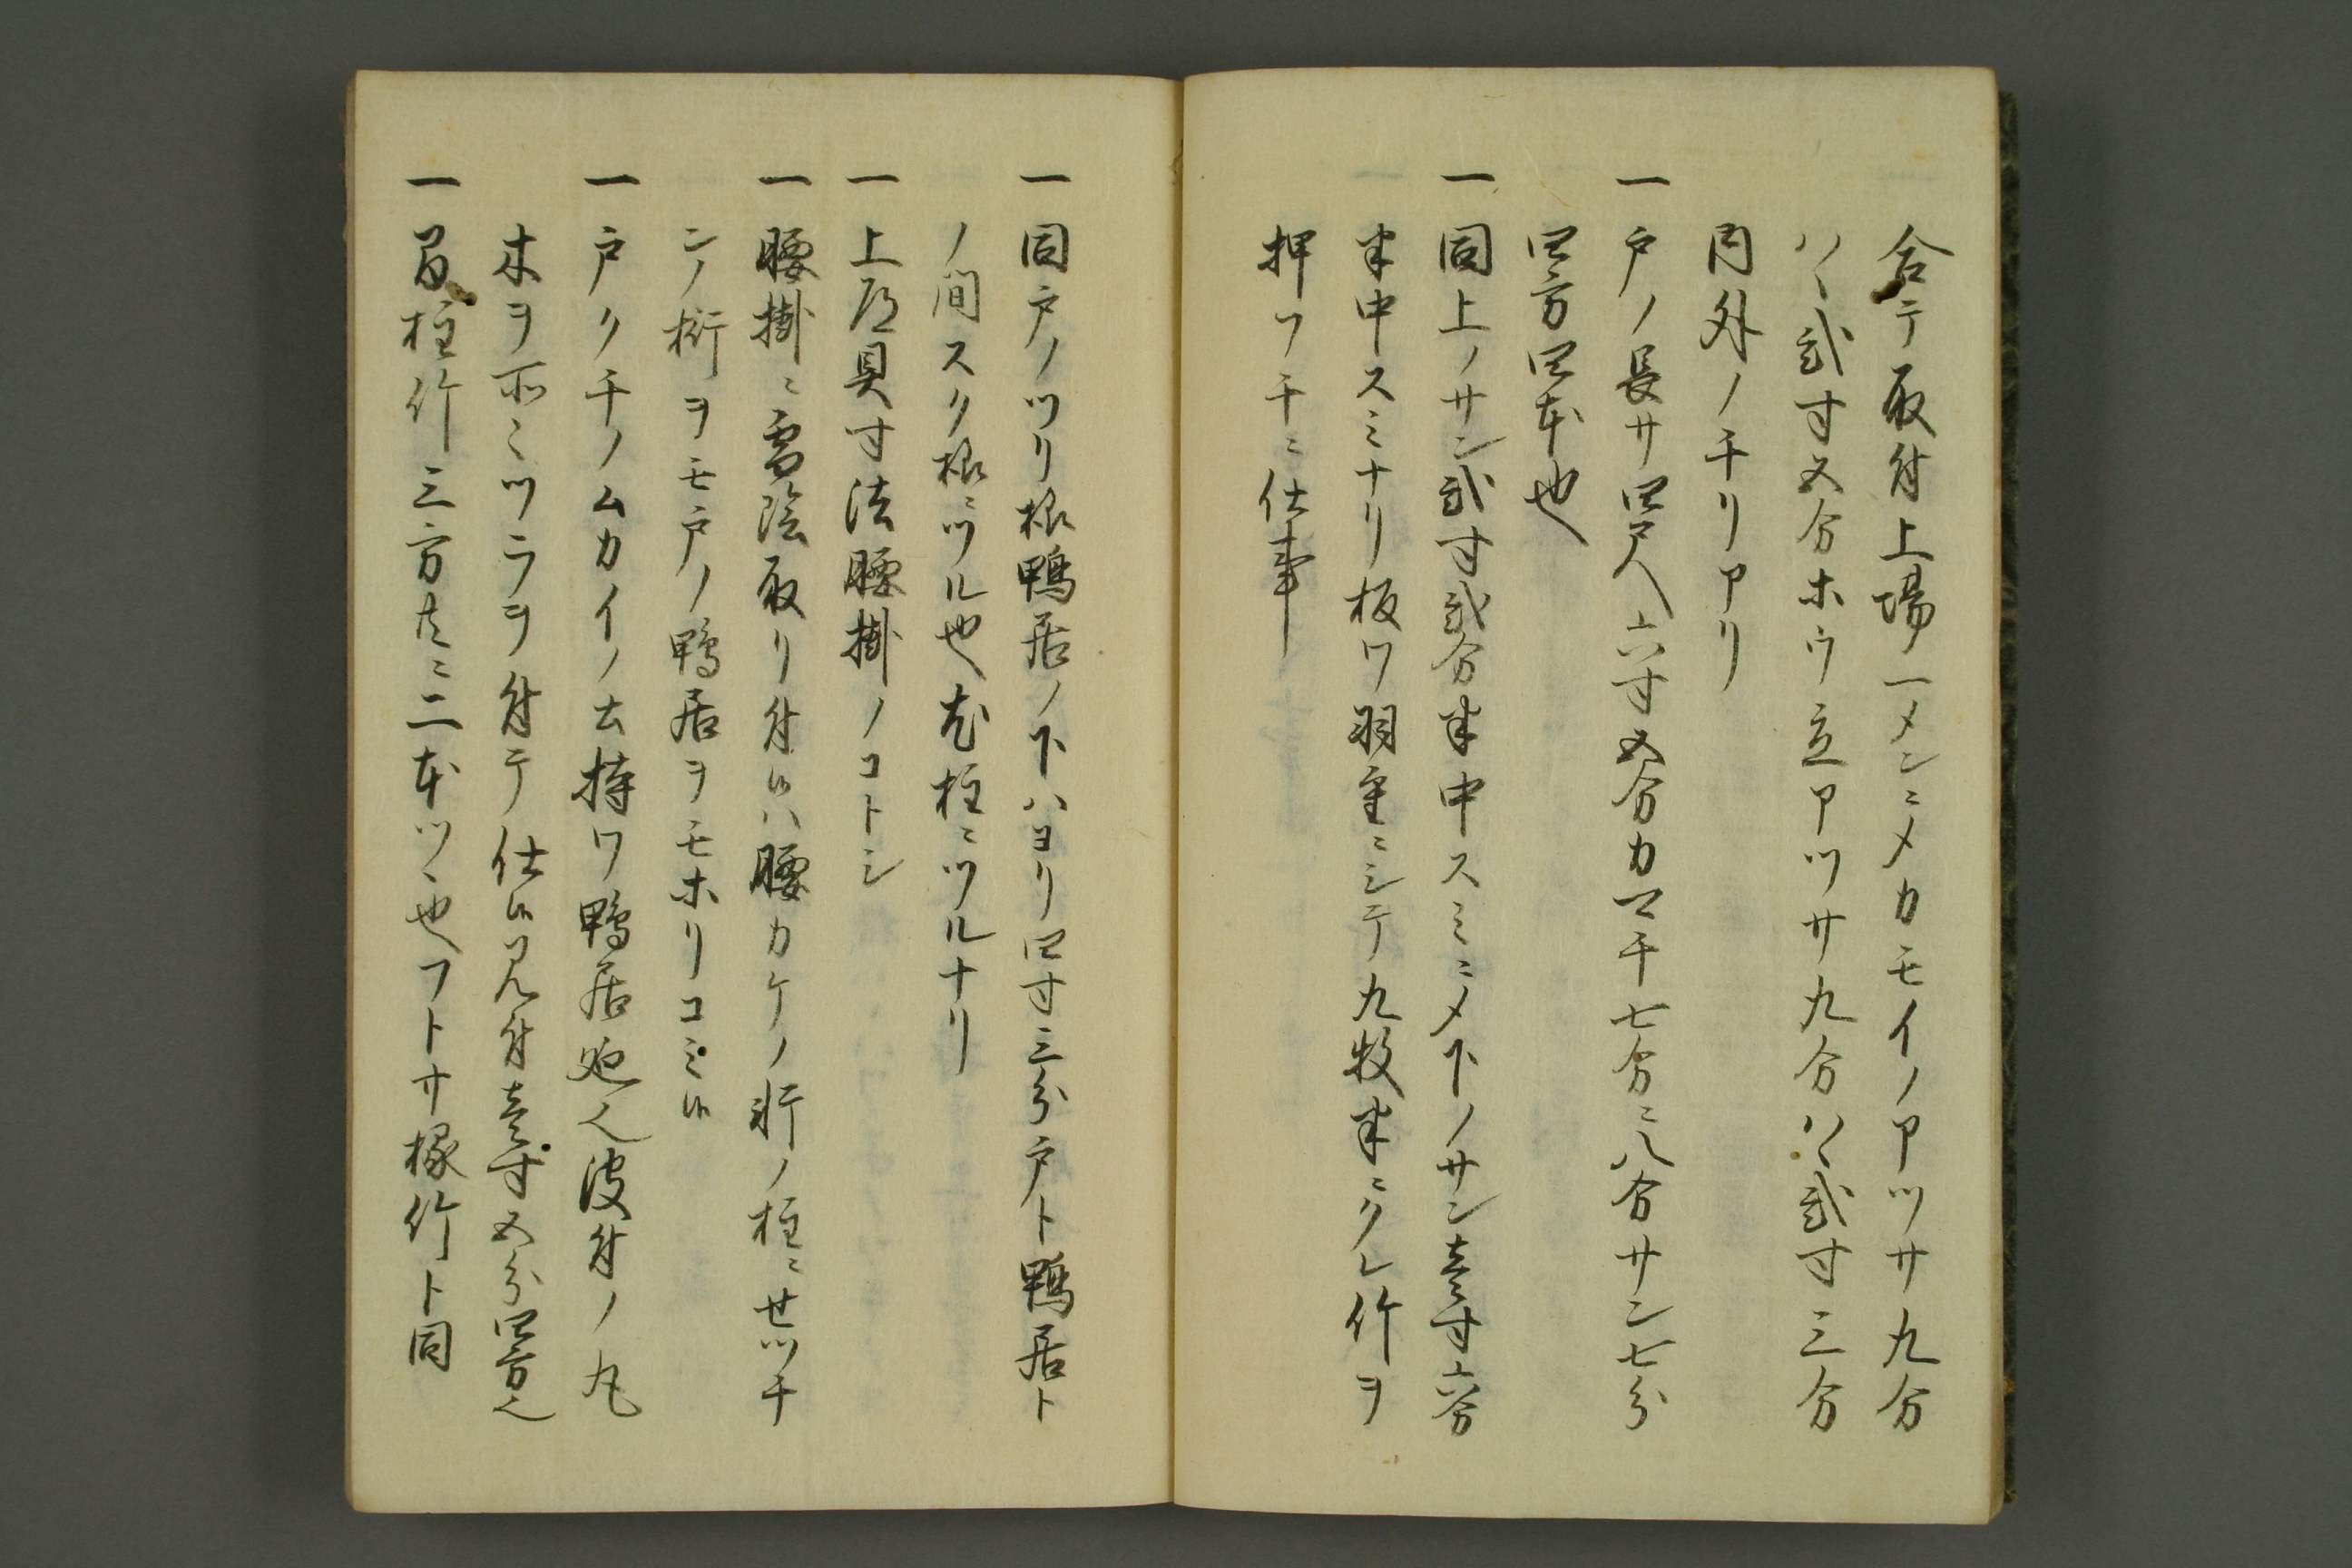 合テ取付上場一メンニメカモイノアツサ九分
ハヽ弐寸五分ホウ立アツサ九分ハヽ弐寸三分
内外ノチリアリ
一戸ノ長サ四尺六寸五分カマチ七分ニ八分サン七分
四方四本也
一同上ノサン弐寸弐分半中スミニメ下ノサン壱寸六分
半中スミナリ板ワ羽重ニシテ九枚半ニクレ竹ヲ
押フチニ仕事
一同戸ノツリ様鴨居ノ下ハヨリ四寸三分戸ト鴨居ト
ノ間スク様ニツル也尤柱ニツルナリ
一上屋具寸法腰掛ノコトシ
一腰掛ニ雪隠取リ付候ハ腰カケノ桁ノ柱ニセツチ
ンノ桁ヲモ戸ノ鴨居ヲモホリコミ候
一戸クチノムカイノ土持ワ鴨居迄ヘ波付ノ丸
木ヲ ミツラヲ付テ仕候見付壱寸五分四方ヘ
一 柱竹三方共ニ二本ツヽ也フトサ椽竹ト同